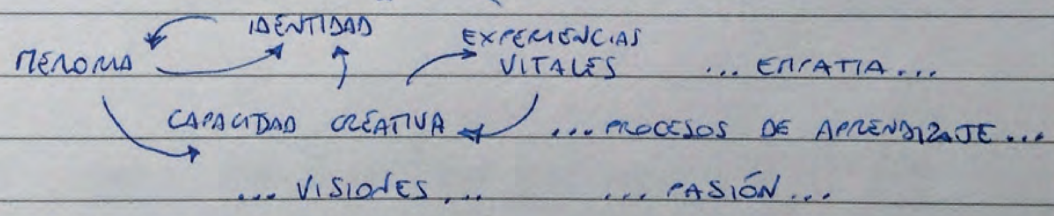 IDENTIDAD
EXPERIENCIAS
MEMORIA
VITALES ... EMPATIA...
CAPACIDAD CREATIVA ... PROCESOS DE APRENDIZAJE ...
... VISIONES ... ... PASIÓN ...